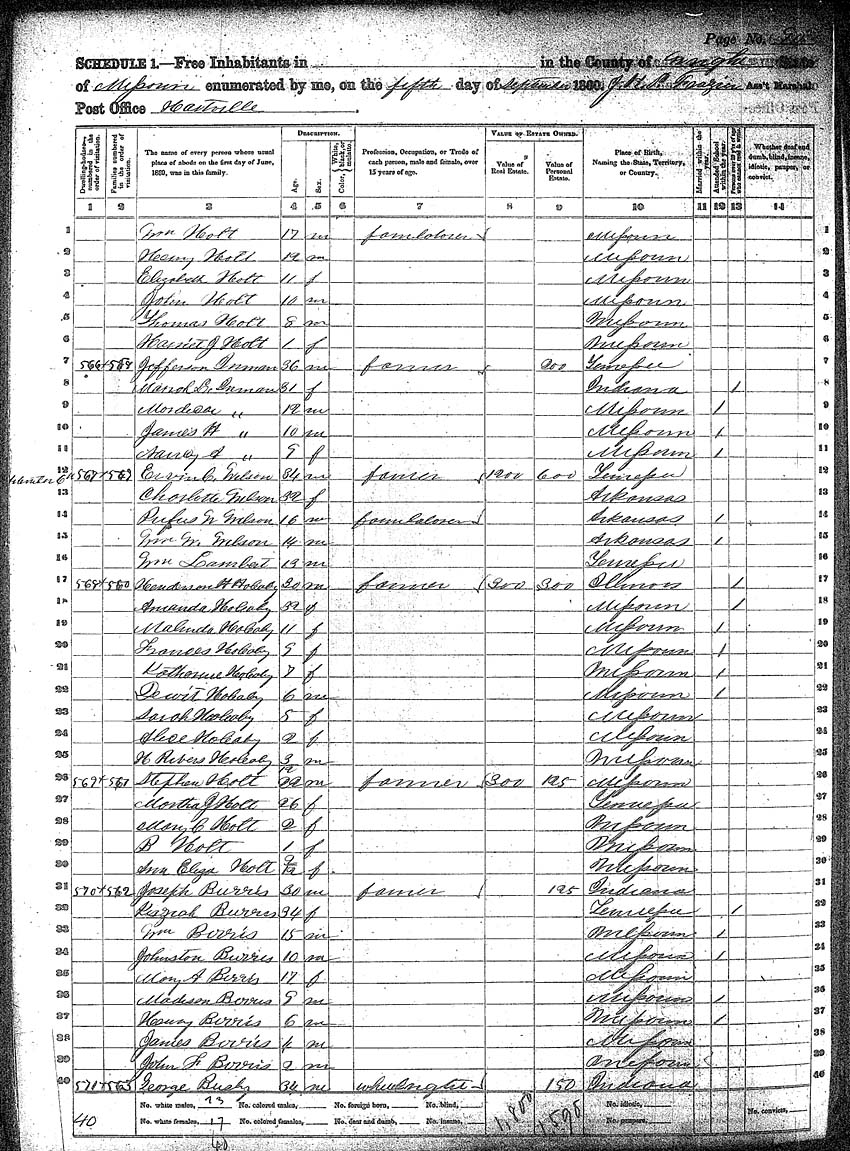 Page No.
SCHEDULE 1.—Free Inhabitants in in the County of Wright State
of Missouri enumerated by me, on the fifth day of September 1860. Frazier Ass't Marshal
Post Office Hartville
DESCRIPTION. VALUE OF ESTATE OWNED.
Dwelling-houses—numbered in the order of visitation. Families numbered in the order of visitation. The name of every person whose usual place of abode on the first day of June, 1860, was in this family. Age. Sex. Color, White, black, or mulatto. Profession, Occupation, or Trade of each person, male and female, over 15 years of age. Value of Real Estate. Value of Personal Estate. Place of Birth, Naming the State, Territory, or Country. Married within the year. Attended School within the year. Persons over 20 y'rs of age who cannot read & write. Whether deaf and dumb, blind, insane, idiotic, pauper, or convict.
1 2 3 4 5 6 7 8 9 10 11 12 13 14
1 Wm Holt 17 m farm laborer Missouri 1
2 Henry Holt 12 m Missouri 2
3 Elizabeth Holt 11 f Missouri 3
4 John Holt 10 m Missouri 4
5 Thomas Holt 8 m Missouri 5
6 Harriet J Holt 1 f Missouri 6
7 Jefferson Inman 36 m farmer 200 Tennessee 7
8 Inman 31 f Indiana / 8
9 Mordecai " 12 m Missouri 1 9
10 James H " 10 m Missouri 1 10
11 Nancy A " 9 f Missouri 1 11
12 Ervin C. Nelson 34 m farmer 1200 600 Tennessee 12
13 Charlotte Nelson 32 f Arkansas 13
14 Rufus N Nelson 16 m farm laborer Arkansas 1 14
15 Wm W. Nelson 14 m Arkansas 1 15
16 Wm Lambert 19 m Tennessee 16
17 Henderson H Holeaby 30 m farmer 300 300 Illinois / 17
18 Amanda Holeaby 32 f Missouri / 18
19 Malinda Holeaby 11 f Missouri 1 19
20 Frances Holeaby 9 f Missouri 1 20
21 Katherine Holeaby 7 f Missouri 1 21
22 Dewit Holeaby 6 m Missouri 1 22
23 Sarah Holeaby 5 f Missouri 23
24 Alice Holeaby 2 f Missouri 24
25 H Rivers Holeaby 3/12 m Missouri 25
26 569 561 Stephen Holt 22 m farmer 300 195 Missouri 26
27 Martha J Holt 26 f Tennessee 27
28 Mary C Holt 2 f Missouri 28
29 B Holt 1 f Missouri 29
30 Ann Eliza Holt 2/12 f Missouri 30
31 570 562 Joseph Burris 30 m farmer 195 Indiana 31
32 Keziah Burris 34 f Tennessee / 32
33 Wm Burris 15 m Missouri 1 33
34 Johnston Burris 10 m Missouri 1 34
35 Mary A Burris 17 f Missouri 35
36 Madison Burris 9 m Missouri 1 36
37 Henry Burris 6 m Missouri 1 37
38 James Burris 4 m Missouri 38
39 John F Burris 2 m Missouri 39
40 571 563 George Busby 34 m wheelwright 150 Indiana 40
No. white males, 23 No. colored males, No. foreign born, No. blind, No. idiotic, No. convicts,
40 No. white females, 17 No. colored females, No. deaf and dumb, No. insane, 1,800 1,595 No. paupers,
40